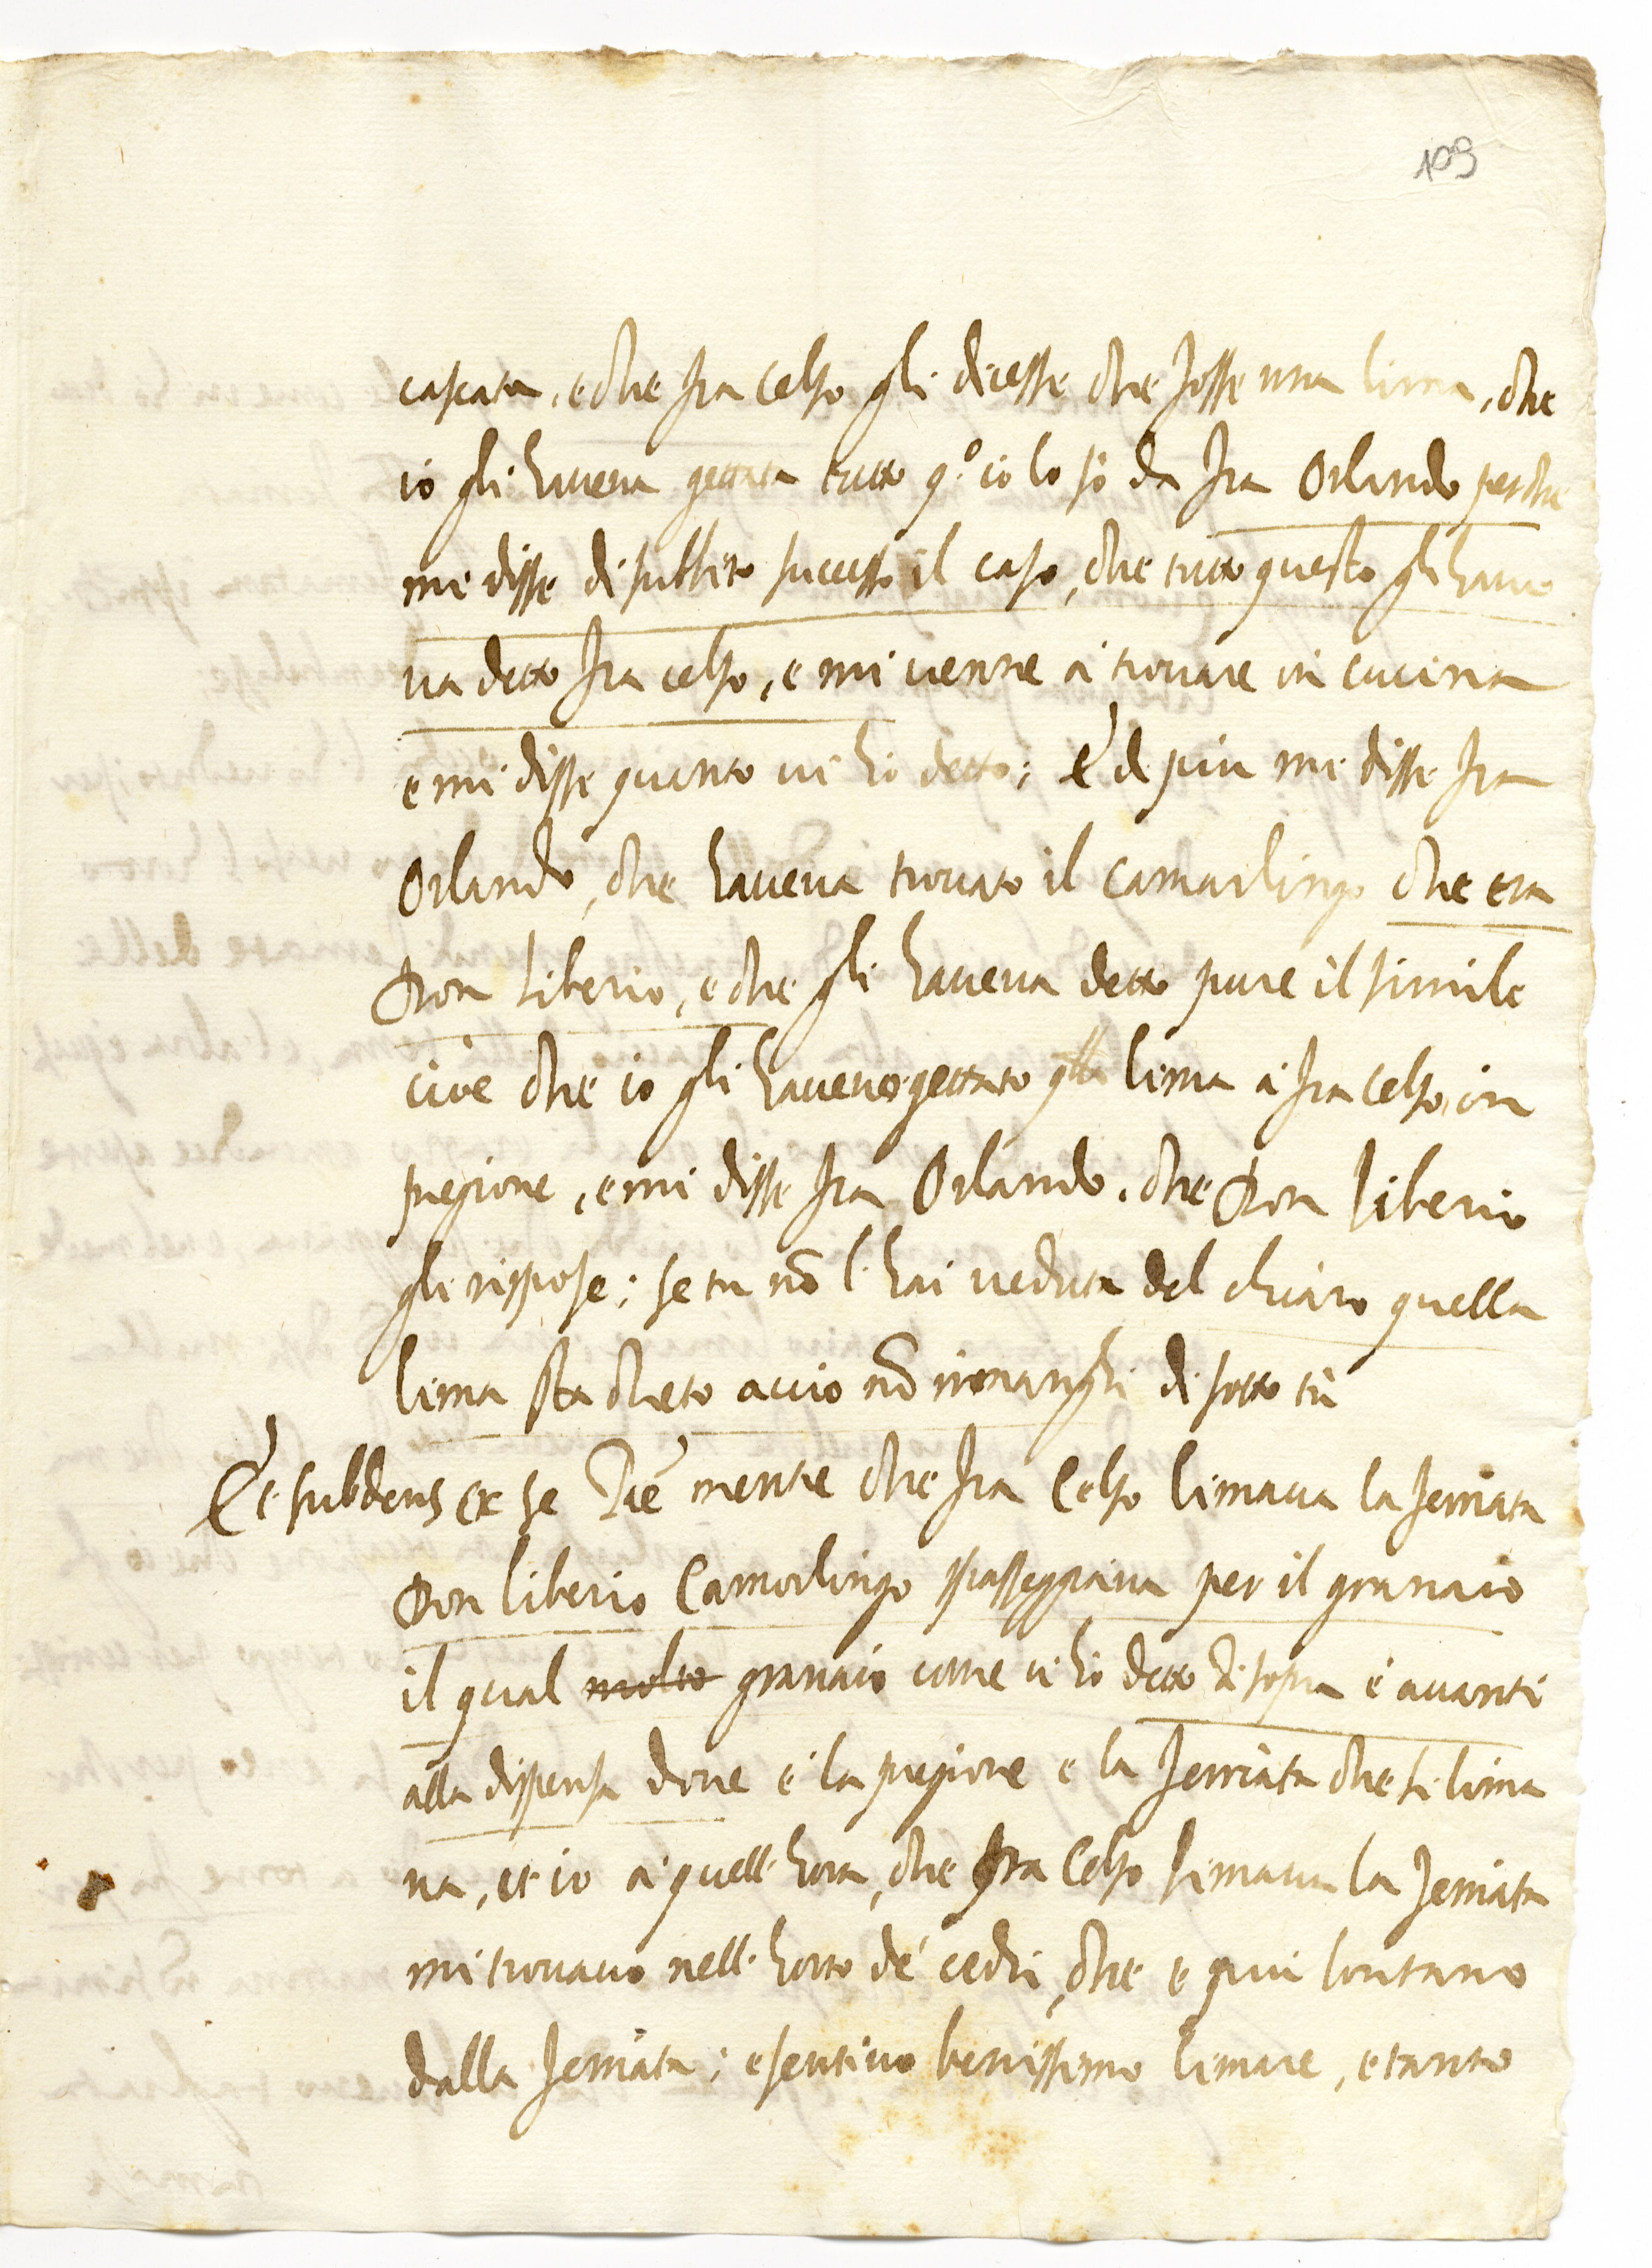 109
cascata, e che fra Celso gli dicesse che fosse una lima, che
io gli haveva gettata tutto q.º io lo sò da fra Orlando perche
me disse di subbito successo il caso, che tutto questo gli have
va detto fra Celso, e mi venne à trovare in cucina
e mi disse quanto vi hò detto; è di piu me disse fra
Orlando, che haveva trovato il Camarlingo che era
Don Liberio, e che gli haveva detto pure il simile
cioè che io gli havevo gettato qlla lima à fra Celso, in
pregione, e mi disse fra Orlando, che Don Liberio
gli rispose; se tu nō l'hai veduta del chiaro quella
lima sta cheto accio nō rimanghi di sotto tù
Et subdens ex se Dic̄ mentre che fra Celso limava la ferriata
Don Liberio Camorlingo spasseggiava per il granaio
il qual molto granaio come vi hò detto di sopra è avanti
alla dispensa dove è la pregione e la ferriata che si lima
va, et io à quell'hora, che fra Celso limava la ferriata
mi trovavo nell'horto de' cedri, che è piu lontano
dalla ferriata; e sentivo benissimo limare, e tanto